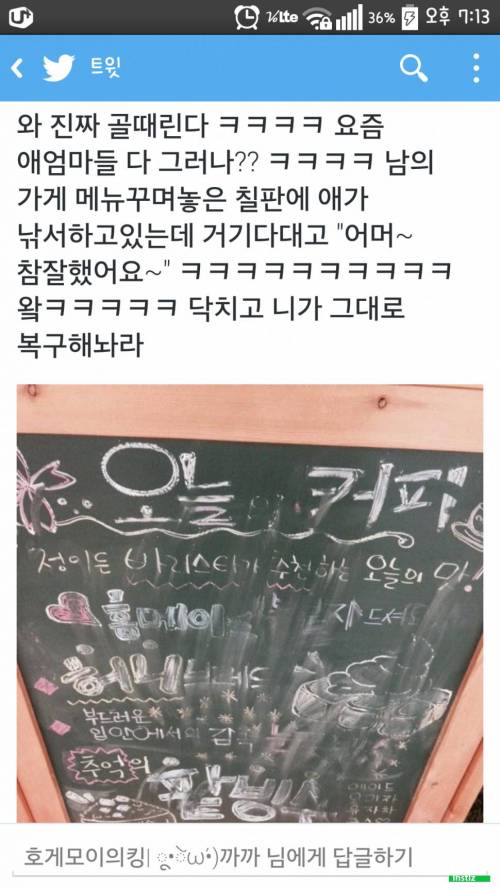 36% 오후 7:13
트윗
와 진짜 골때린다 ㅋㅋㅋㅋ 요즘
애엄마들 다 그러나?? ㅋㅋㅋㅋ 남의
가게 메뉴꾸며놓은 칠판에 애가
낚서하고있는데 거기다대고 "어머~
참잘했어요~" ㅋㅋㅋㅋㅋㅋㅋㅋㅋㅋㅋ
왘ㅋㅋㅋㅋㅋ 닥치고 니가 그대로
복구해놔라
오늘의 커피
정이든 바리스타가 추천하는 오늘의 맛!
홈메이드 자드셔요
허니브레드
부드러운
입안에서의 감촉
추억의
팥빙수
유자차
호게모이의킹| 까까 님에게 답글하기
instiz